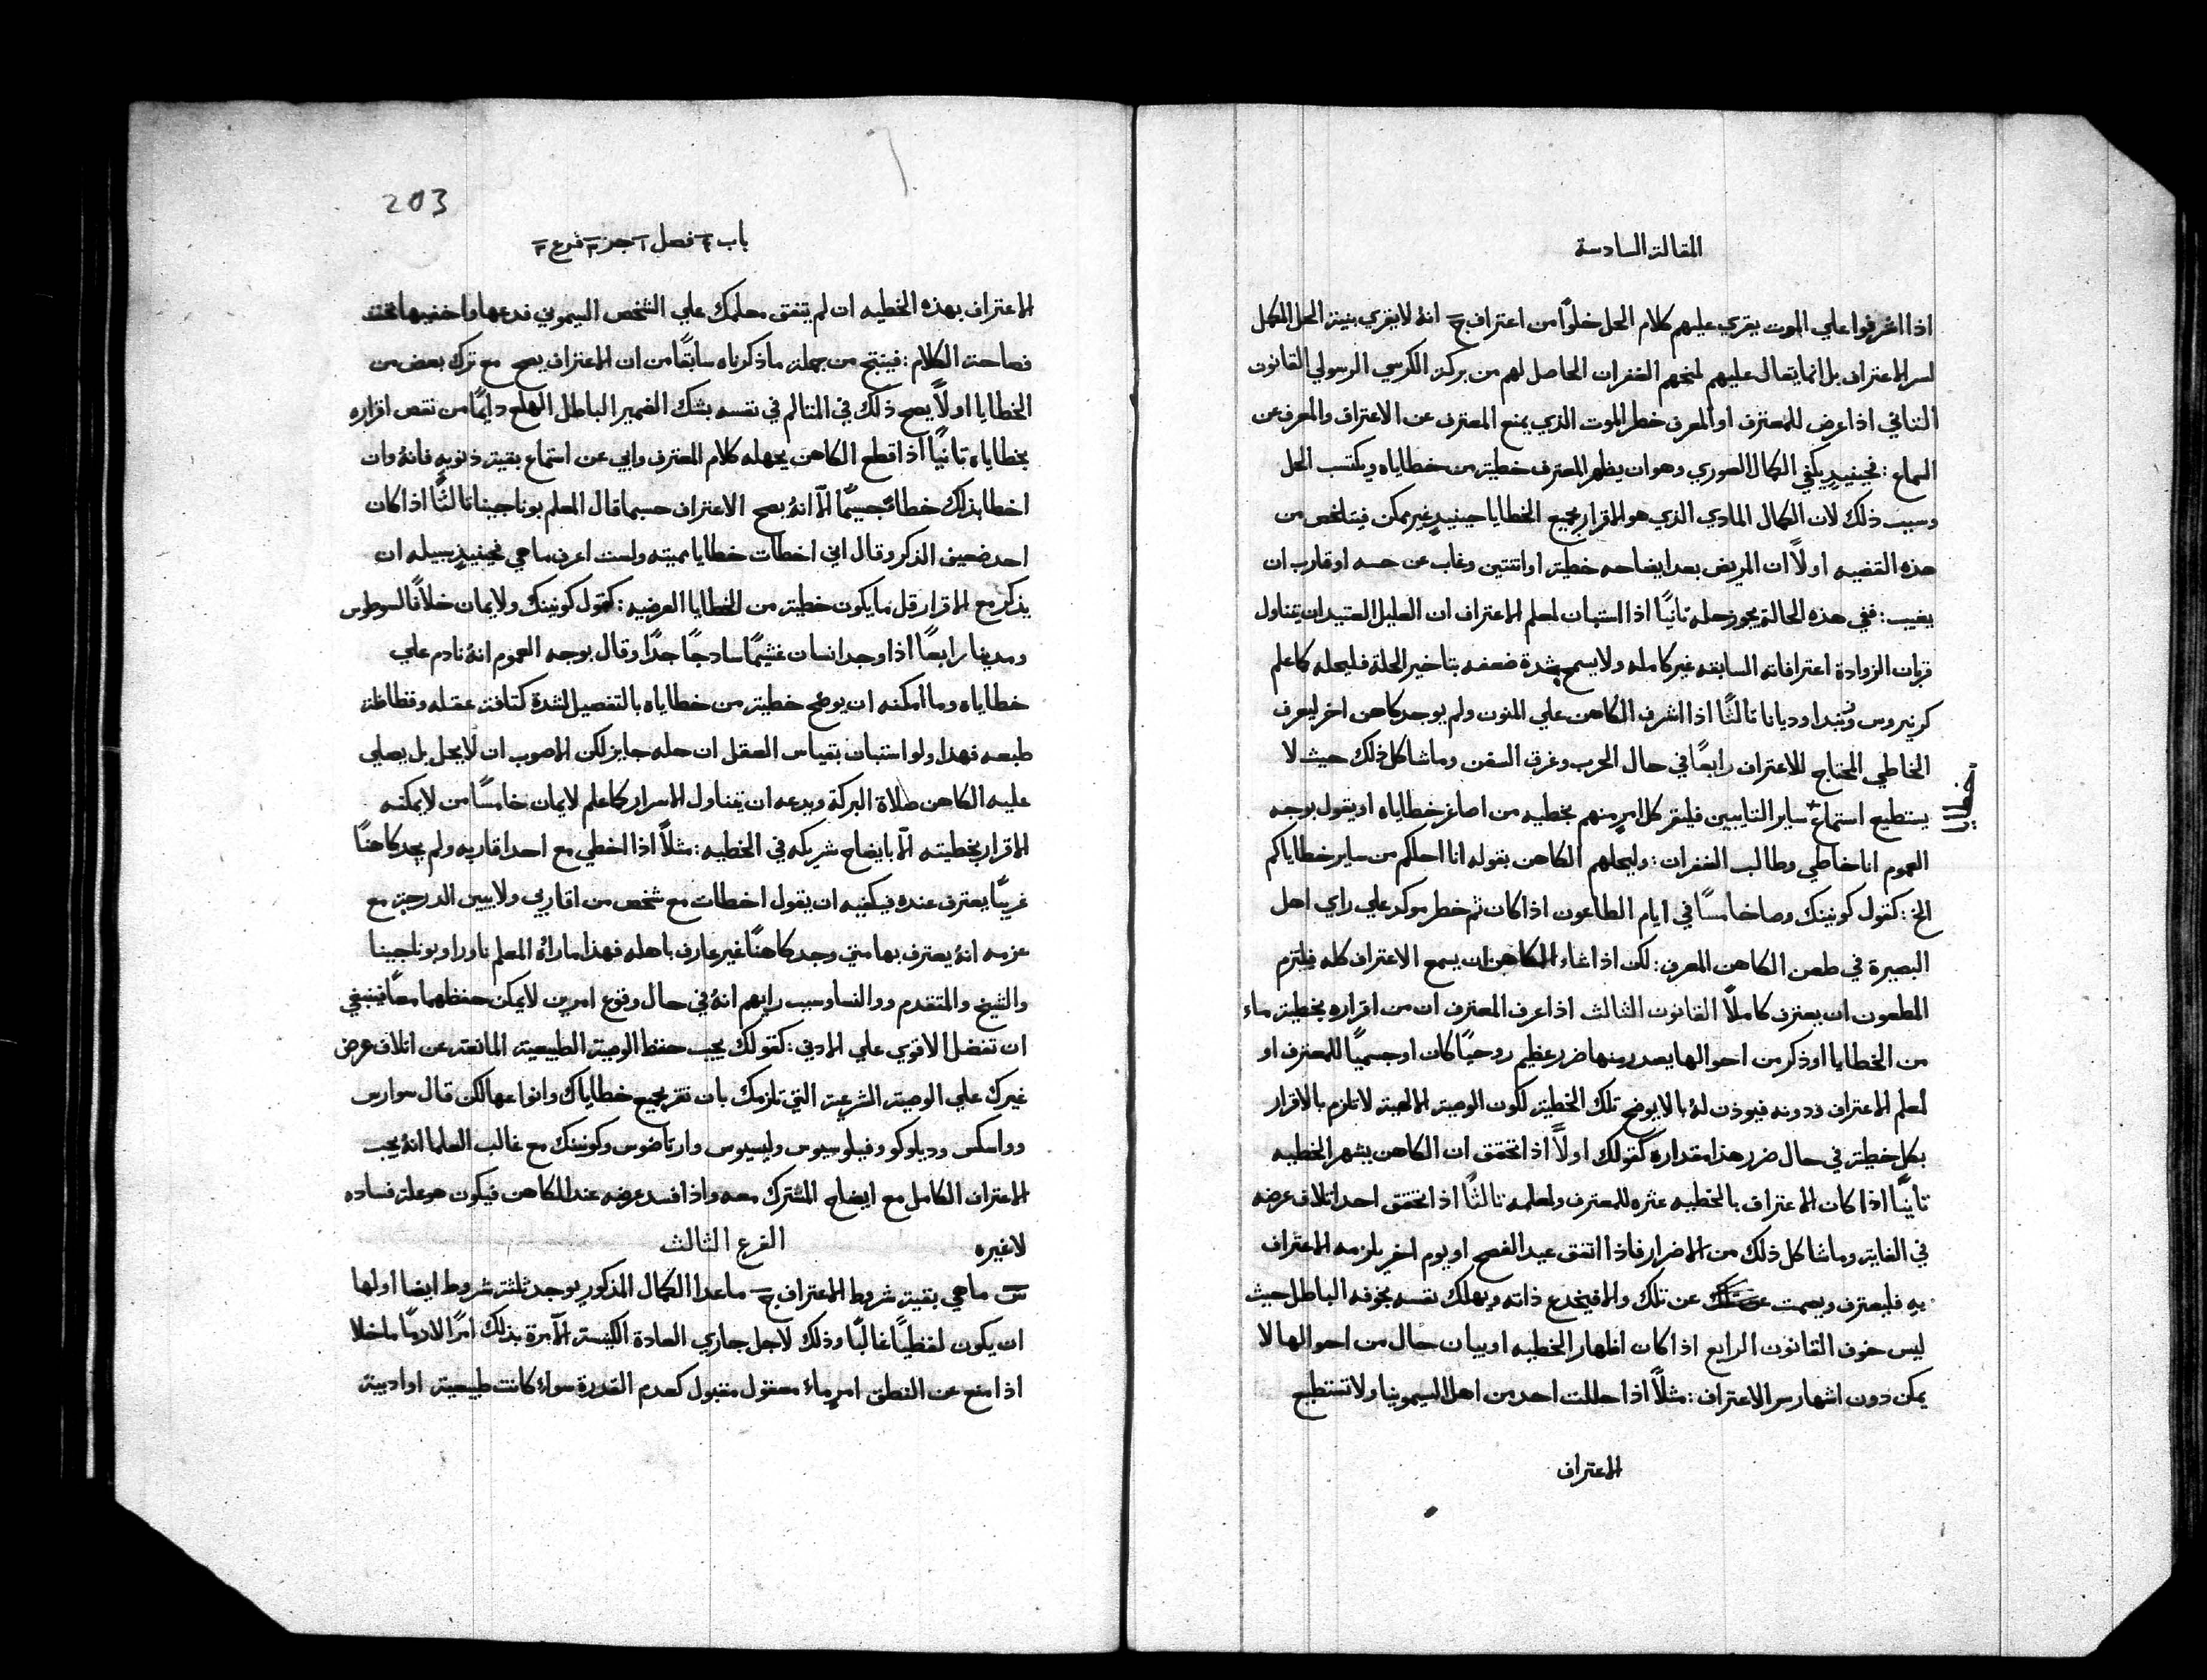 المقالة السادسة
اذا اشرفوا علي الموت يقري عليهم كلام الحل خلوًا من اعتراف ج انهُ لا يقري بنية الحل المكمل
لسر الاعتراف بل انما يقال عليهم لمنحهم الغفران الحاصل لهم من بركة الكرسي الرسولي القانون
الثاني اذا عرض للمعترف او المعرف خطر الموت الذي يمنع المعترف عن الاعتراف والمعرف عن
السماع : فحينيذٍ يكفي الكمال الصوري وهو ان يظهر المعترف خطية من خطاياه ويكتسب الحل
وسبب ذلك لان الكمال المادي الذي هو الاقرار بجميع الخطايا حينيذٍ غير ممكن فيتلخص من
هذه القضيه اولاً ان المريض بعد ايضاحه خطية او اثنتين وغاب عن حسه او قارب ان
يغيب : ففي هذه الحالة يجوز حله ثانيًا اذا استبان لمعلم الاعتراف ان العليل العتيد ان يتناول
قربان الزوادة اعترافاته السابقه غير كامله ولا يسمح شدة ضعفه بتاخير الحلة فليحله كما علم
كرنيروس وديانا ثالثًا اذا اشرف الكاهن علي المنون ولم يوجد كاهن اخر ليعرف
الخاطي المحتاج للاعتراف رابعًا في حال الحرب وغرق السفن وما شاكل ذلك حيث لا
يستطيع استماع ساير التايبين فليقر كل امرٍ منهم بخطيه من اصاغر خطاياه او يقول بوجه
خطايا
العموم انا خاطي وطالب الغفران : وليحلهم الكاهن بقوله انا احلكم من ساير خطاياكم
الخ : كقول كونينك وصا خامسًا في ايام الطاعون اذا كان ثم خطر موكد علي راي اهل
البصيرة في طعن الكاهن المعرف : لكن اذا شاء الكاهن ان يسمع الاعتراف كله فيلتزم
المطعون ان يعترف كاملاً القانون الثالث اذا عرف المعترف ان من اقراره بخطية ماء
من الخطايا او ذكر من احوالها يصدر منها ضرر عظيم روحيًا كان او جسميًا للمعترف او
لمعلم الاعتراف ذدونه فيوذن لهُ بالا يوضح تلك الخطية لكون الوصية الالهية لا تلزم بالاقرار
بكل خطية في حال ضرر هذا مقداره كقولك اولاً اذا تحقق ان الكاهن يشهر الخطيه
ثانيًا اذا كان الاعتراف بالخطيه عثره للمعترف ولمعلمه ثالثًا اذا تحقق احد اتلاف عرضه
في الغاية وما شاكل ذلك من الاضرار فاذا اتفق عيد الفصح او يوم اخر يلزمه الاعتراف
به فليعترف ويصمت عن تلك والا فيخدع ذاته ويهلك نفسه بخوفه الباطل حيث
ليس خوف القانون الرابع اذا كان اظهار الخطيه او بيان حال من احوالها لا
يمكن دون اشهار سر الاعتراف : مثلاً اذا حللت احد من اهل السيمونيا ولا تستطيع
الاعتراف
203
باب ٤ فصل ١ جز ٣ فرع ٣
الاعتراف بهذه الخطيه ان لم يتفق معلمك علي الشخص السيموني فدعها واخفيها تحت
فصاحة الكلام : فينتج من جملة ما ذكرناه سابقًا من ان الاعتراف يصح مع ترك بعض من
الخطايا اولاً يصح ذلك في المتالم في نفسه بشك الضمير الباطل الهلع دايمًا من نقص اقراره
بخطاياه ثانيًا اذا قطع الكاهن بجهله كلام المعترف وابي عن استماع بقية ذنوبه فانهُ وان
اخطا بذلك خطاءً جسيمًا الا انهُ يصح الاعتراف حسبما قال المعلم بوناجينا ثالثًا اذا كان
احد ضعيف الذكر وقال اني اخطات خطايا مميته ولست اعرف ما هي فحينيذٍ سبيله ان
يذكر مع الاقرار قل ما يكون خطية من الخطايا العرضيه : كقول كونينك ولايمان خلافًا لسوطوس
ومدينا رابعًا اذا وجد انسان غشيمًا سادجًا جدًا وقال بوجه العموم انهُ نادم علي
خطاياه وما امكنه ان يوضح خطية من خطاياه بالتفصيل لشدة كثافة عقله وفظاظة
طبعه فهذا ولو استبان بقياس العقل ان حله جايز لكن الاصوب ان لا يحل بل يصلي
عليه الكاهن صلاة البركة ويدعه ان يتناول الاسرار كما علم لايمان خامسًا من لا يمكنه
الاقرار بخطيته الا بايضاح شريكه في الخطيه : مثلاً اذا اخطي مع احد اقاربه ولم يجد كاهنًا
غريبًا يعترف عنده فيكفيه ان يقول اخطات مع شخص من اقاربي ولا يبين الدرجة مع
عزمه انهُ يعترف بها متي وجد كاهنًا غير عارف باهله فهذا ما راهُ المعلم ناورا وبوناجينا
والشيخ والمتقدم ووالنسا وسبب رايهم انهُ في حال وقوع امرين لا يمكن حفظهما معًا فينبغي
ان تفضل الاقوي علي الادني : كقولك يجب حفظ الوصية الطبيعية المانعة عن اتلاف عرض
غيرك علي الوصية الشرعية التي تلزمك بان تقر بجميع خطاياك وانواعها لكن قال سوارس
وواسكس وديلوكو وفيلوسيوس وليسيوس وارتاضوس وكونينك مع غالب العلما انهُ يجب
الاعتراف الكامل مع ايضاح المشترك معه واذا فسد عرضه عند الكاهن فيكون هو علة فساده
لا غيره
الفرع الثالث
س ما هي بقية شروط الاعتراف ج ما عدا الكمال المذكور يوجد ثلثة شروط ايضا اولها
ان يكون لفظيًا غالبًا وذلك لاجل جاري العادة الكنيسة الآمرة بذلك امرًا لازمًا ما خلا
اذا منع عن النطق امرٍ ماء معقول مقبول كعدم القدرة سواء كانت طبيعية او ادبية